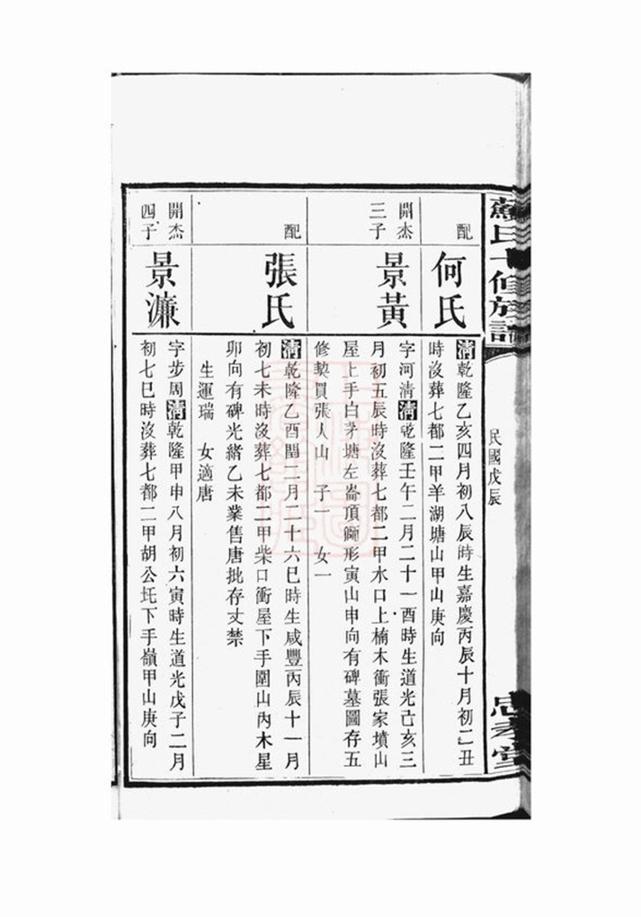 蘇氏十修族譜
民國戊辰
思孝堂
配
何氏
清乾隆乙亥四月初八辰時生嘉慶丙辰十月初二丑
時沒葬七都二甲羊湖塘山甲山庚向
開杰
三子
景黃
字河清清乾隆壬午二月二十一酉時生道光己亥三
月初五辰時沒葬七都二甲水口上楠木衝張家墳山
屋上手白茅塘左崙頂形寅山申向有碑墓圖存五
修契買張人山 子一 女一
配
張氏
清乾隆乙酉閏二月十六巳時生咸豐丙辰十一月
初七未時沒葬七都二甲柴口衝屋下手圍山內木星
卯向有碑光緒乙未業售唐批存丈禁
生運瑞 女適唐
開杰
四子
景濂
字步周清乾隆甲申八月初六寅時生道光戊子二月
初七巳時沒葬七都二甲胡公圫下手嶺甲山庚向